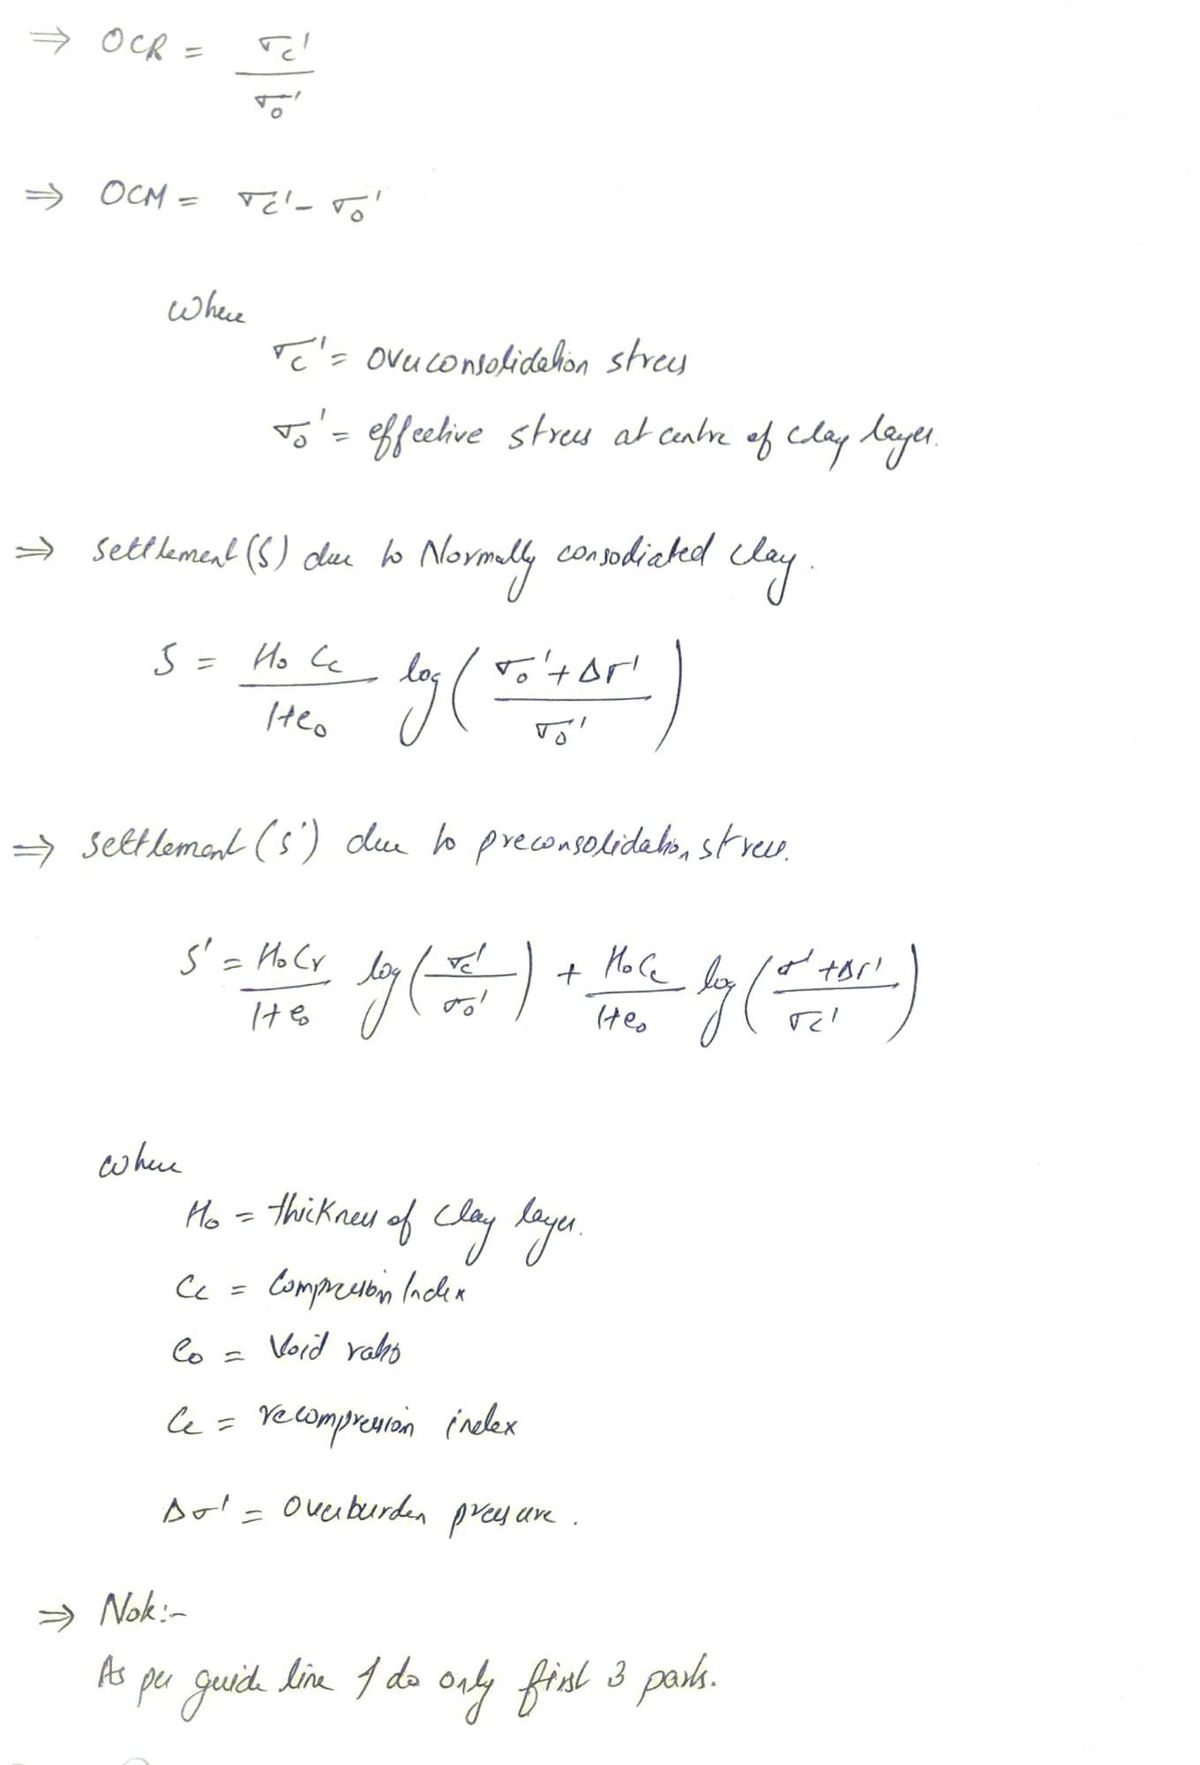 ⇒ OCR = σc' / σo'
⇒ OCM = σc' - σo'
Where
σc' = overconsolidation stress
σo' = effective stress at centre of clay layer.
⇒ settlement (S) due to Normally consodiated clay.
S = Ho Cc / 1+eo log ( σo' + Δσ' / σo' )
⇒ settlement (s') due to preconsolidation stress.
S' = Ho Cr / 1+eo log ( σc' / σo' ) + Ho Cc / 1+eo log ( σ' + Δσ' / σc' )
where
Ho = thickness of clay layer.
Cc = Compression Index
eo = Void ratio
Cc = recompression index
Δσ' = Overburden pressure.
⇒ Note:-
As per guide line I do only first 3 parts.